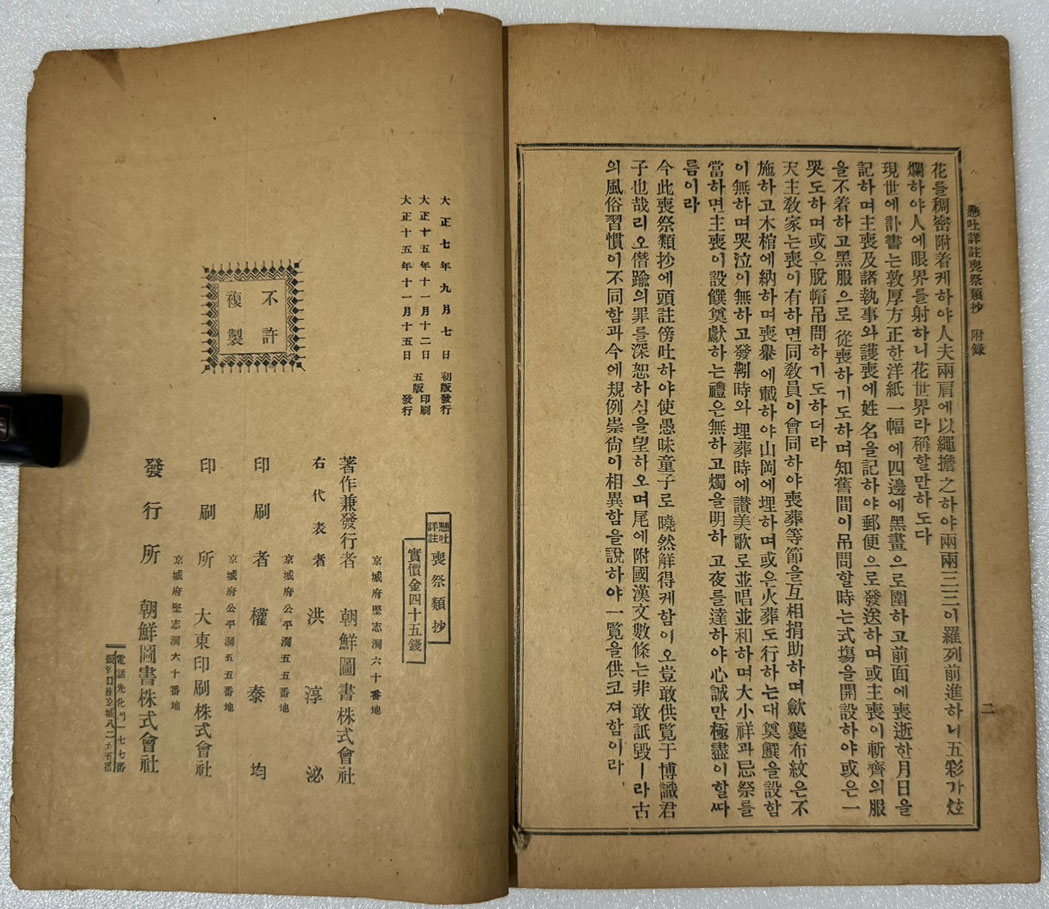 懸吐詳註喪祭類抄 附錄
二
花를稠密附着케하야人夫兩肩에以繩擔之하야兩兩三三이羅列前進하니五彩가炫
爛하야人에眼界를射하니花世界라稱할만하도다
現世에訃書는敦厚方正한洋紙一幅에四邊에黑畫으로圍하고前面에喪逝한月日을
記하며主喪及諸執事와護喪에姓名을記하야郵便으로發送하며或主喪이斬齊의服
을不着하고黑服으로從喪하기도하며知舊間이吊問할時는式塲을開設하야或은一
哭도하며或은脫帽吊問하기도하더라
天主敎家는喪이有하면同敎員이會同하야喪葬等節을互相捐助하며斂襲布紋은不
施하고木棺에納하며喪轝에戴하야山岡에埋하며或은火葬도行하는대奠饌을設함
이無하며哭泣이無하고發靷時와埋葬時에讃美歌로並唱並和하며大小祥과忌祭를
當하면主喪이設饌奠獻하는禮은無하고燭을明하고夜를達하야心誠만極盡이할ᄯᅡ
름이라
今此喪祭類抄에頭註傍吐하야使愚味童子로曉然觧得케함이오豈敢供覽于博識君
子也哉리오僭踰의罪를深恕하심을望하오며尾에附國漢文數條는非敢詆毁ㅣ라古
의風俗習慣이不同함과今에規例崇尙이相異함을說하야一覽을供코져함이라
大正七年九月七日 初版發行
大正十五年十一月十二日 五版印刷
大正十五年十一月十五日 發行
不許
複製
懸吐
詳註
喪祭類抄
實價金四十五錢
京城府堅志洞六十番地
著作兼發行者 朝鮮圖書株式會社
右代表者 洪淳泌
京城府公平洞五五番地
印刷者 權泰均
京城府公平洞五五番地
印刷所 大東印刷株式會社
京城府堅志洞六十番地
發行所 朝鮮圖書株式會社
電話光化門一七七番